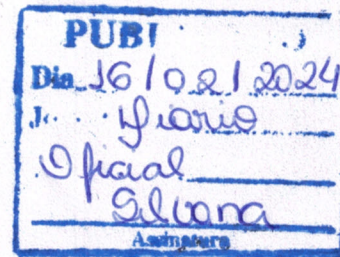 PUBI
Dia 16/02/2024
J. Diario
Oficial
Silvana
Assinatura